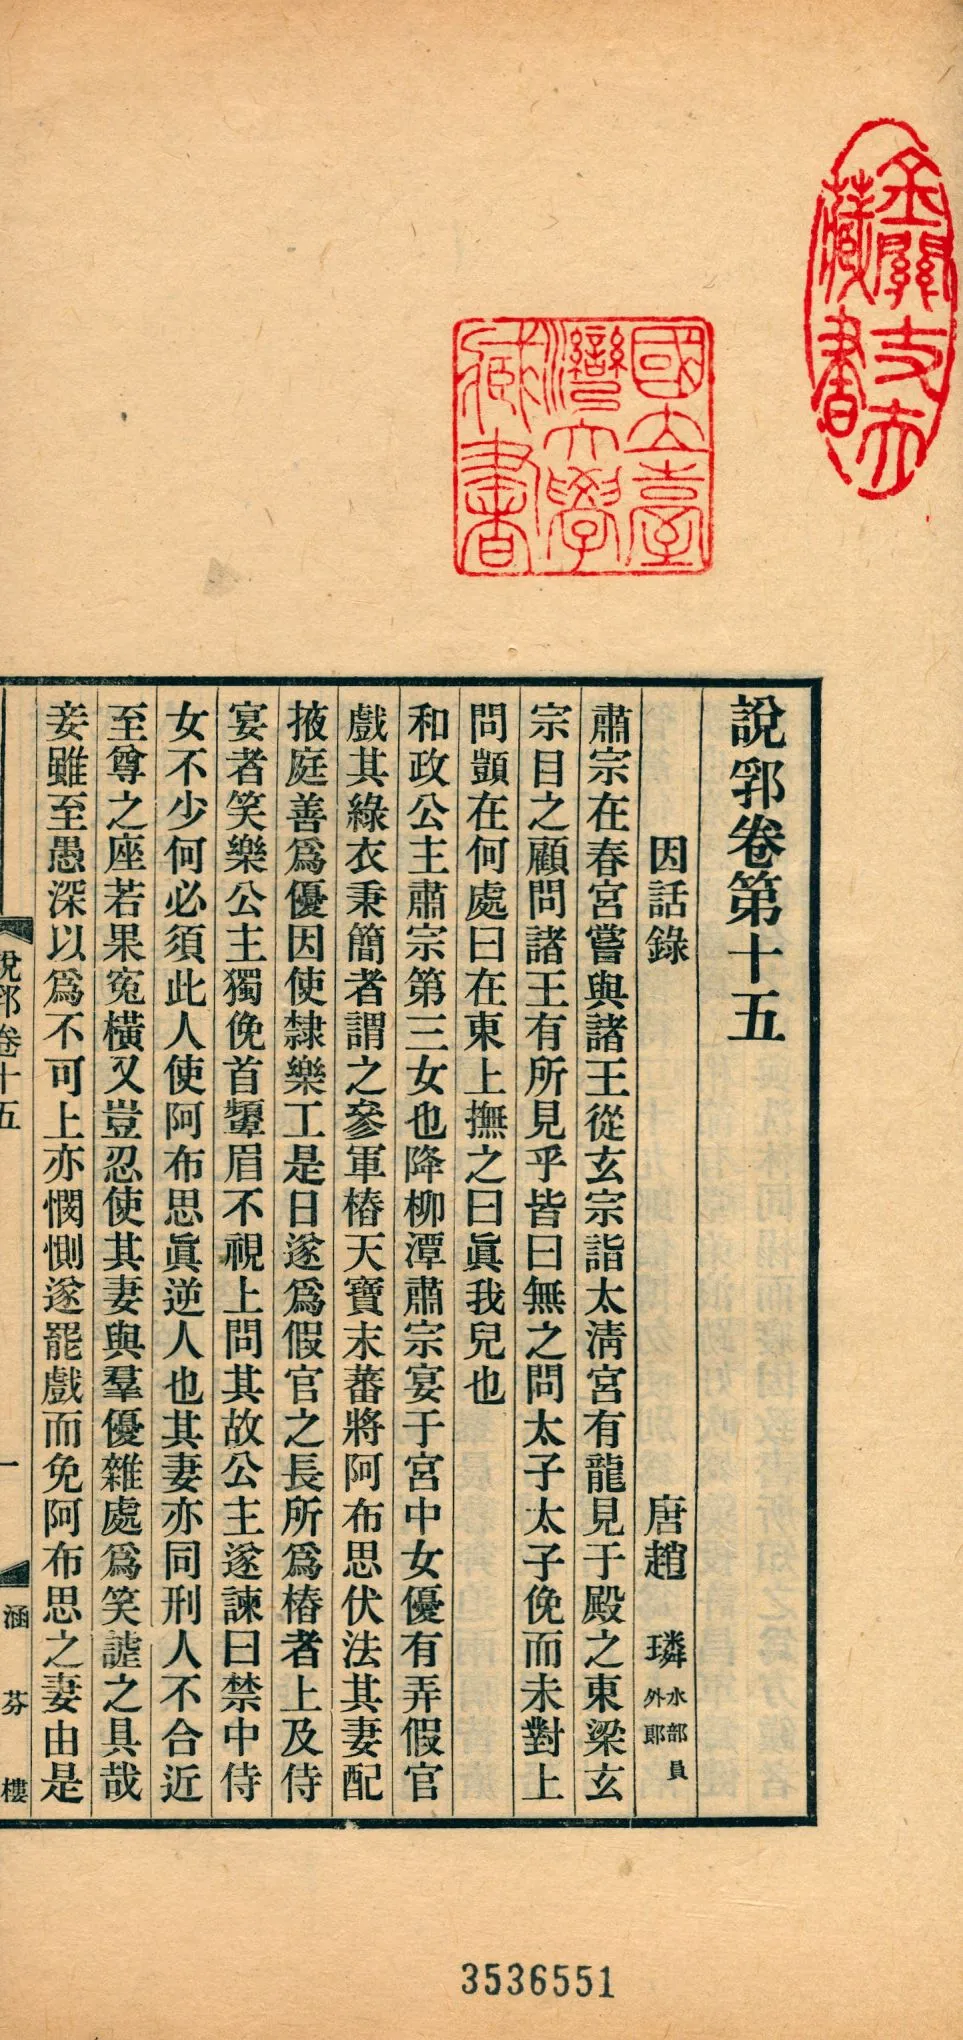 金關丈夫藏書
國立臺灣大學藏書
說郛卷第十五
因話錄 唐趙 璘 水部員外郎
肅宗在春宮嘗與諸王從玄宗詣太淸宮有龍見于殿之東梁玄
宗目之顧問諸王有所見乎皆曰無之問太子太子俛而未對上
問顗在何處曰在東上撫之曰眞我兒也
和政公主肅宗第三女也降柳潭肅宗宴于宮中女優有弄假官
戲其綠衣秉簡者謂之參軍樁天寶末蕃將阿布思伏法其妻配
掖庭善爲優因使隸樂工是日遂爲假官之長所爲樁者上及侍
宴者笑樂公主獨俛首顰眉不視上問其故公主遂諫曰禁中侍
女不少何必須此人使阿布思眞逆人也其妻亦同刑人不合近
至尊之座若果冤橫又豈忍使其妻與羣優雜處爲笑謔之具哉
妾雖至愚深以爲不可上亦憫惻遂罷戲而免阿布思之妻由是
說郛卷十五 一 涵芬樓
3536551